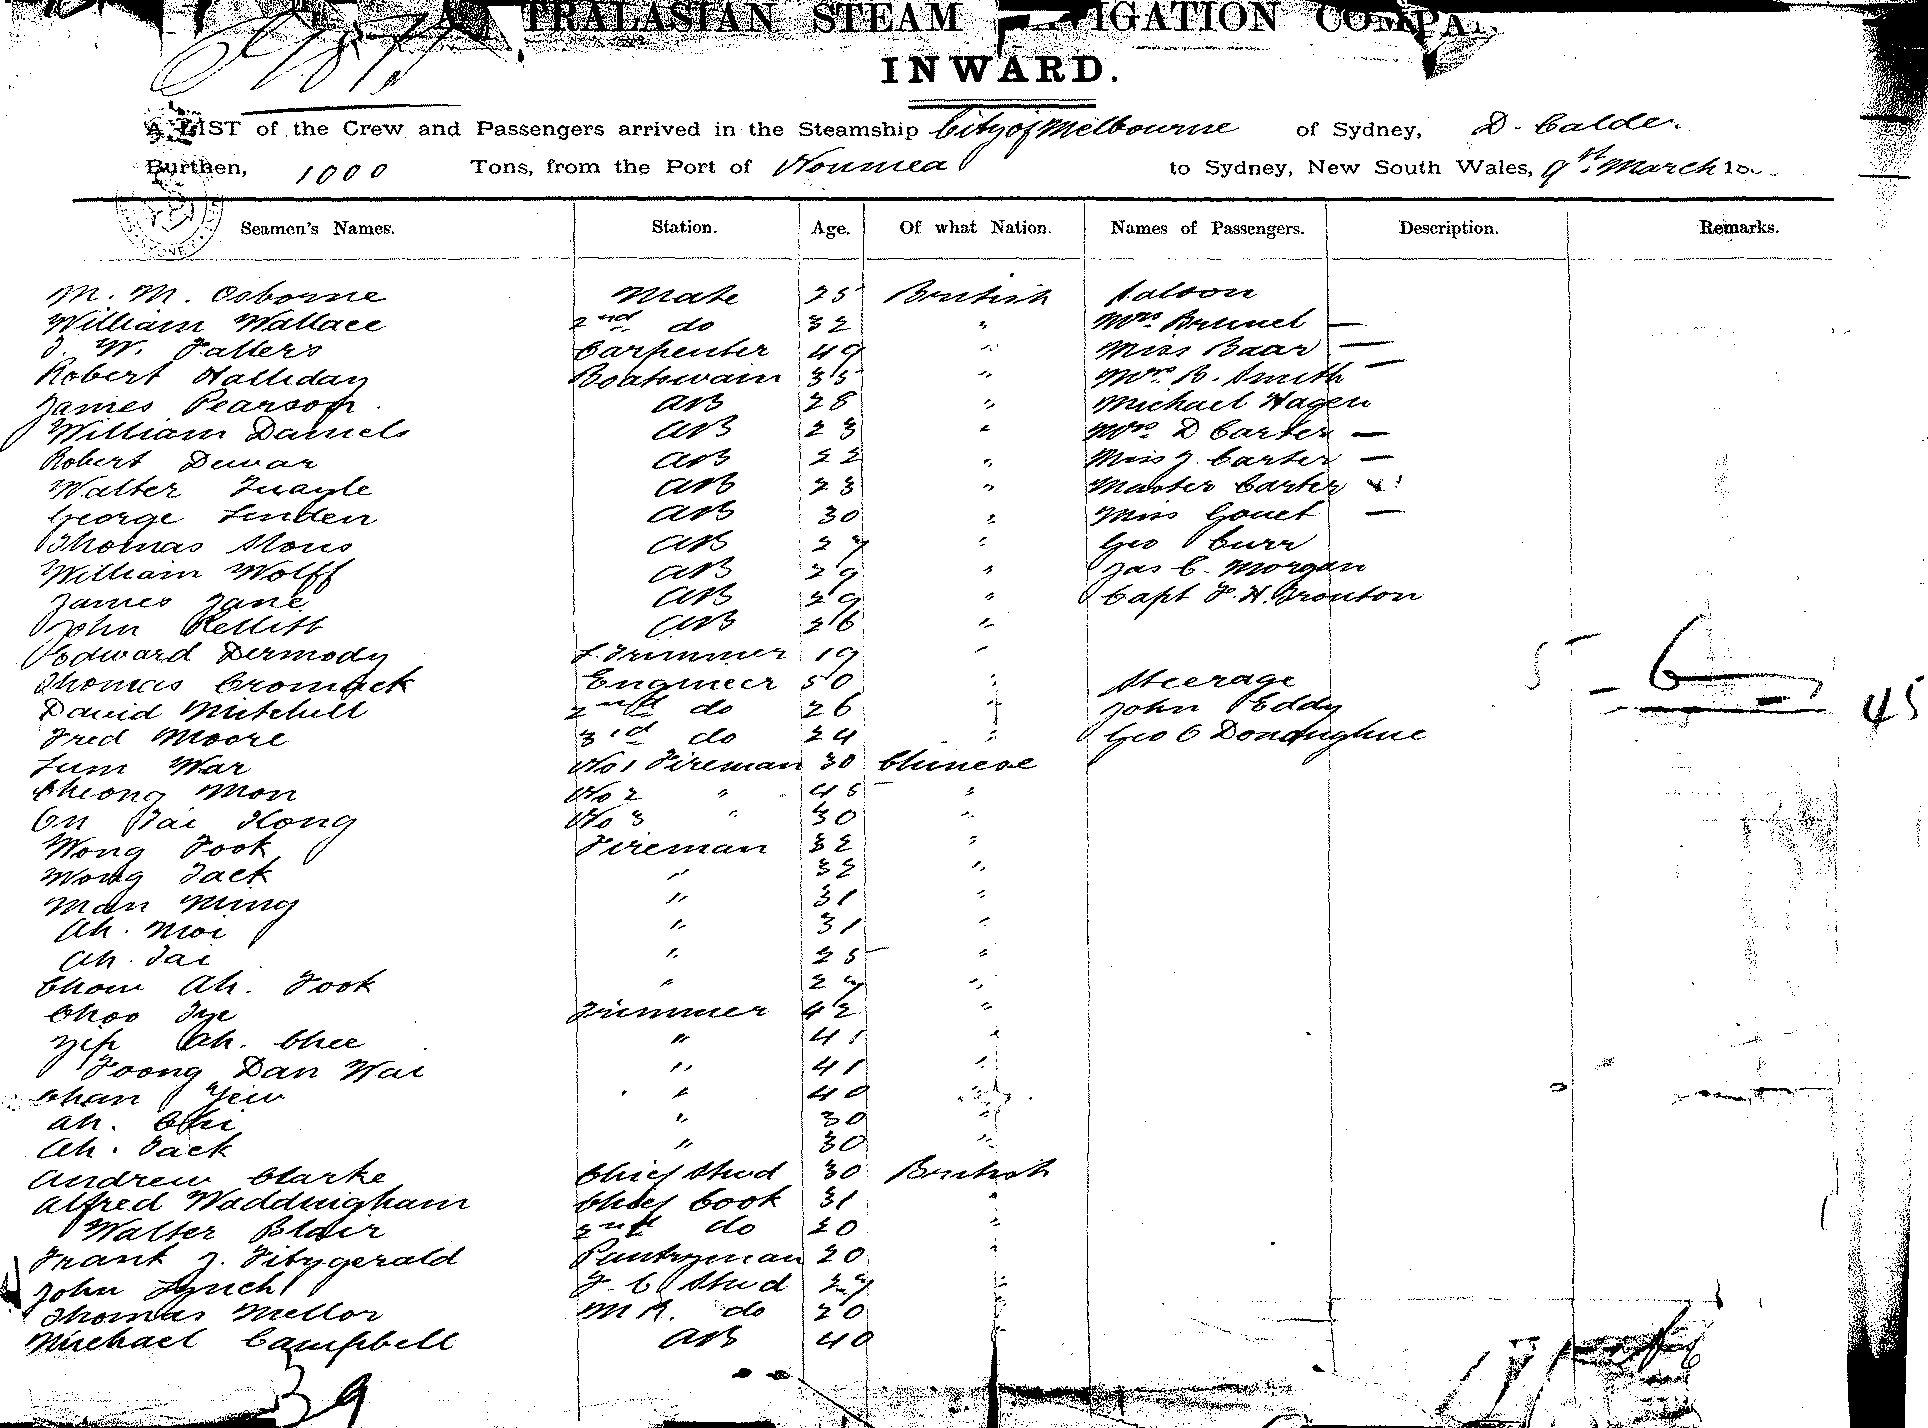 TRALASIAN STEAM IGATION COMPA
INWARD.
A LIST of the Crew and Passengers arrived in the Steamship City of Melbourne of Sydney, D. Calder
Burthen, 1000 Tons, from the Port of Noumea to Sydney, New South Wales, 9th March 18
Seamen's Names. Station. Age. Of what Nation. Names of Passengers. Description. Remarks.
M. M. Osborne Mate 25 British Saloon
William Wallace 2nd do 32 " Mrs Brunel —
J. W. Falters Carpenter 49 " Miss Baar —
Robert Halliday Boatswain 35 " Mrs B. Smith —
James Pearson AB 28 " Michael Hagen
William Daniels AB 23 " Mrs D Carter —
Robert Dewar AB 22 " Miss J. Carter —
Walter Quayle AB 23 " Master Carter
George Linden AB 30 " Miss Gouet —
Thomas AB 27 " Geo Curr
William Wolff AB 29 " Jas C. Morgan
James Jane AB 29 " Capt F. H. Trouton
John AB 26 "
Edward Dermody F. Trimmer 19 "
Thomas Cromack Engineer 50 " Steerage 5 6
David Mitchell 2nd do 26 " John Eddy 45
Fred Moore 3rd do 24 " Geo O Donoughue
Lum War No 1 Fireman 30 Chinese
Cheong Mon No 2 " 45 "
On Tai Hong No 3 " 30 "
Wong Fook Fireman 32 "
Wong Jack " 32 "
Man Ming " 31 "
Ah. Moi " 31 "
Ah. Tai " 25 "
Chow Ah. Fook " 27 "
Choo Tye Trimmer 42 "
Yip Ah. Chee " 41 "
Foong Dan Wai " 41 "
Chan Yew " 40 "
Ah. Chi " 30 "
Ah. Jack " 30 "
Andrew Clarke Chief Stwd 30 British
Alfred Waddingham Chief Cook 31 "
Walter Blair 2nd do 20 "
Frank J. Fitzgerald Pantryman 20 "
John Lynch F. C Stwd 27 "
Thomas Mellor M R. do 20 "
Michael Campbell AB 40 "
39